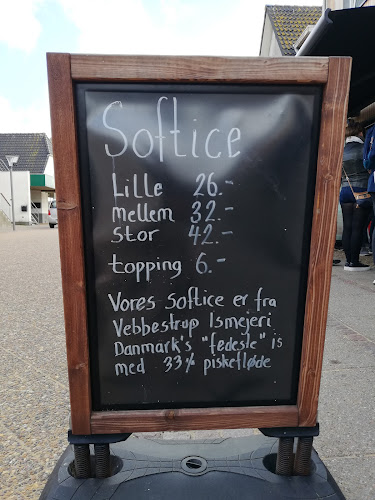 Softice
Lille 26.-
mellem 32.-
stor 42.-
topping 6.-
Vores softice er fra
Vebbestrup Ismejeri
Danmark's "fedeste" is
med 33% piskefløde